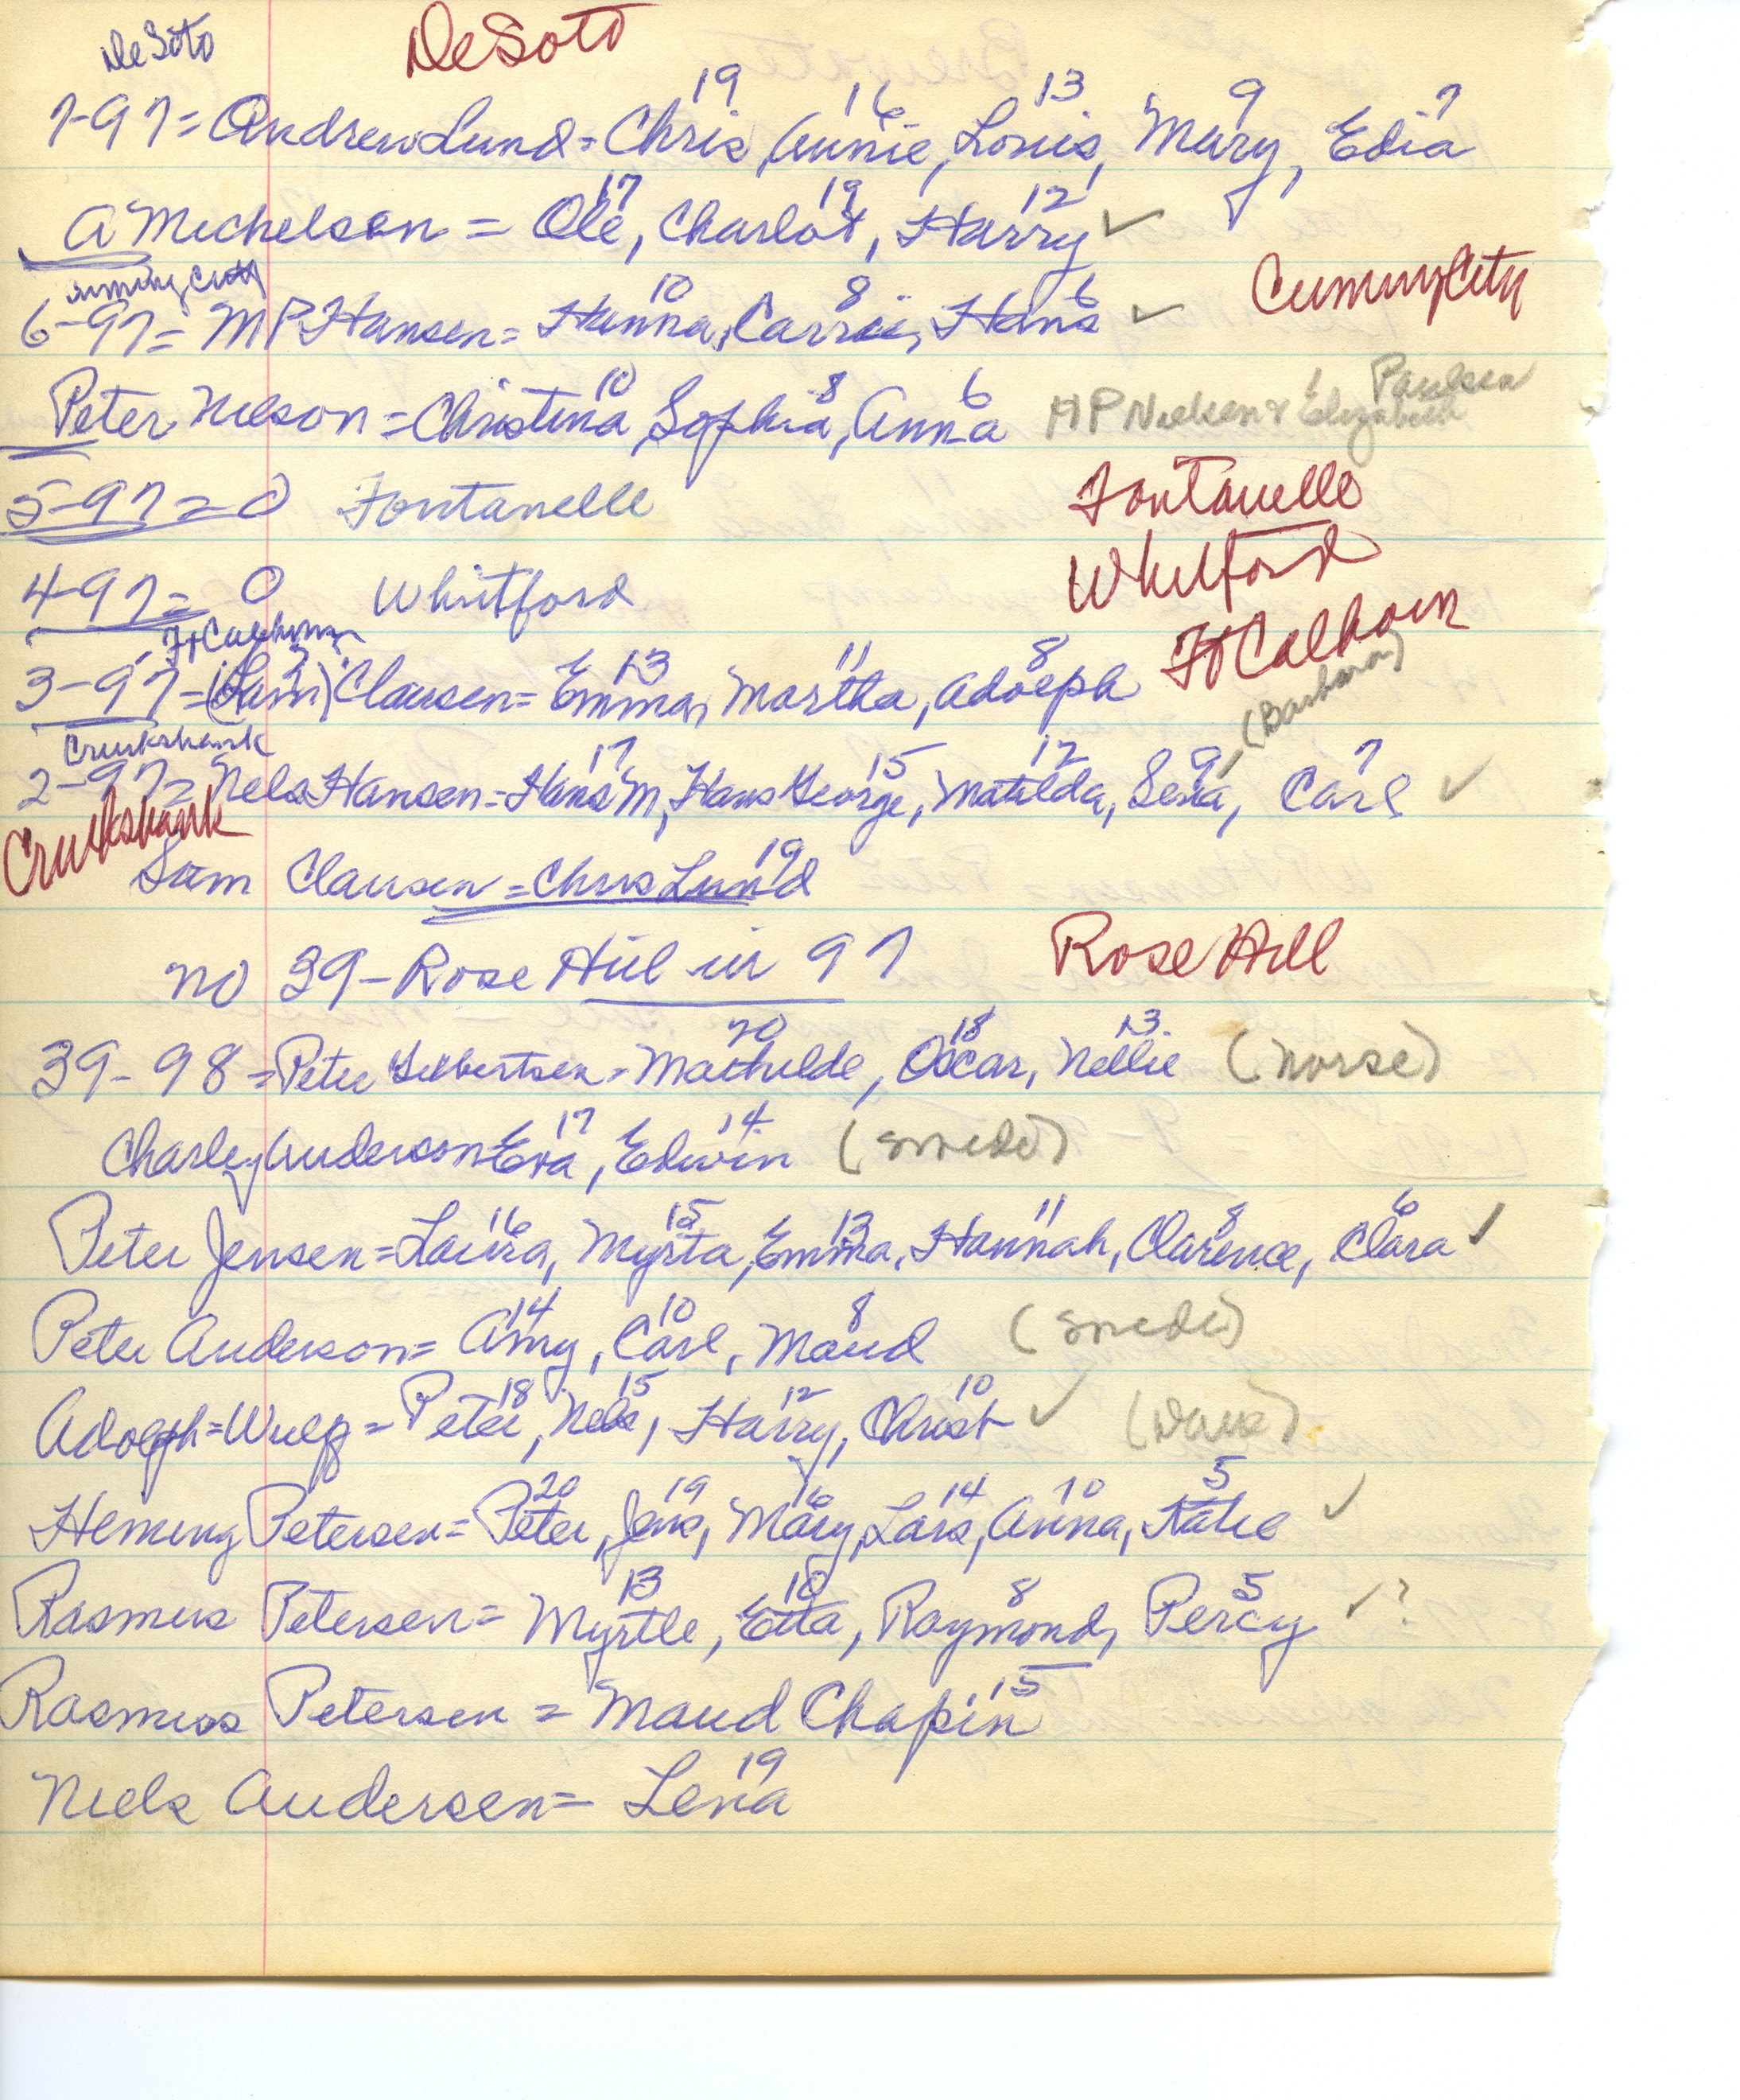 DeSoto DeSoto
19 16 13 9 7
7-97= Andrew Lund = Chris, Annie, Louis, Mary, Edia
17 19 12
A Michelsen = Ole, Charlot, Harry ✓
Cuming City Cuming City
10 8 6
6-97= M P Hansen = Hanna, Carrie, Hans ✓
10 8 6 Paulsen
Peter Nelson = Christina, Sophia, Anna H P Nielsen & Elizabeth
5-97=0 Fontanelle Fontanelle
4-97= 0 Whitford Whitford
Ft Calhoun Ft Calhoun
13 11 8
3-97=(Sam) Clausen = Emma, Martha, Adolph
Cruikshank (Barbara)
17 15 12 9 7
2-97= Nels Hansen = Hans M, Hans George, Matilda, Sena, Carl ✓
Cruikshank
19
Sam Clausen = Chris Lund
no 39-Rose Hill in 97 Rose Hill
20 18 13
39-98=Peter Gilbertsen = Mathilde, Oscar, Nellie (norse)
17 14
Charley Anderson = Eva, Edwin (swede)
16 15 13 11 8 6
Peter Jensen = Laura, Myrta, Emma, Hannah, Clarence, Clara ✓
14 10 8
Peter Anderson = Amy, Carl, Maud (swede)
18 15 12 10
Adolph = Wulf = Peter, Nels, Harry, Christ ✓ (Dane)
20 19 16 14 10 5
Heming Petersen = Peter, Jens, Mary, Lars, Anna, Katie ✓
13 10 8 5
Rasmus Petersen = Myrtle, Etta, Raymond, Percy ✓?
15
Rasmuss Petersen = Maud Chapin
19
Niels Andersen = Lena